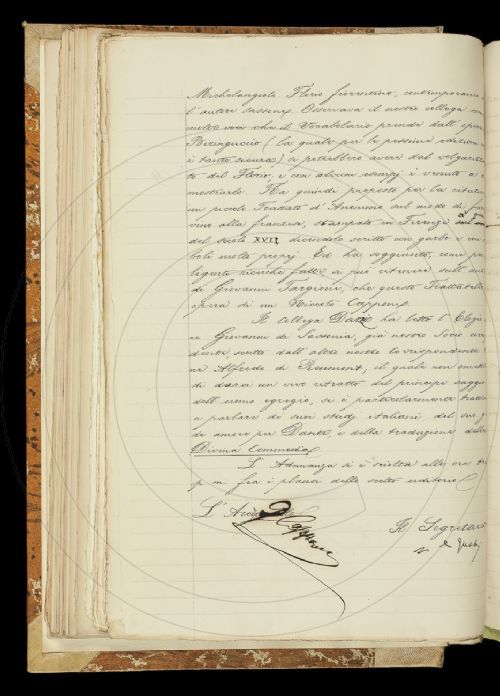 Michelangiolo Florio fiorentino, contemporaneo
l'autore senese. Osservava il nostro collega
molte voci che il Vocabolario prende dall'
Biringuccio (la quale per la pessima edizione
è tanto oscura) si potrebbero avere dal volgarizza
to del Florio; e con alcuni esempj è venuto a
mostrarlo. Ha quindi proposto per la
un piccolo Trattato d'Anonimo sul modo di
vino alla francese, stampato in Firenze
del secolo XVII, dicendolo scritto con garbo e con
boli molto proprj. Ed ha soggiunto, come per
ligenti ricerche fatte, si può ritenere sull'
di Giovanni Targioni, che questo Trattatello
opera di un Niccolò Capponi.
Il collega Dazzi ha letto l'Elogio
re Giovanni di Sassonia, già nostro Socio
dente, scritto dall'altro nostro Corrispondente
ne Alfredo di Reumont; il quale non
di darci un vivo ritratto del principe saggio
dell'uomo egregio, si è particolarmente
a parlare de' suoi studj italiani, del suo
de amore per Dante, e della traduzione della
Divina Commedia.
L'Adunanza si è sciolta alle ore
p. m. fra i plausi dello scelto uditorio.
L'
G. Capponi
Il Segretario